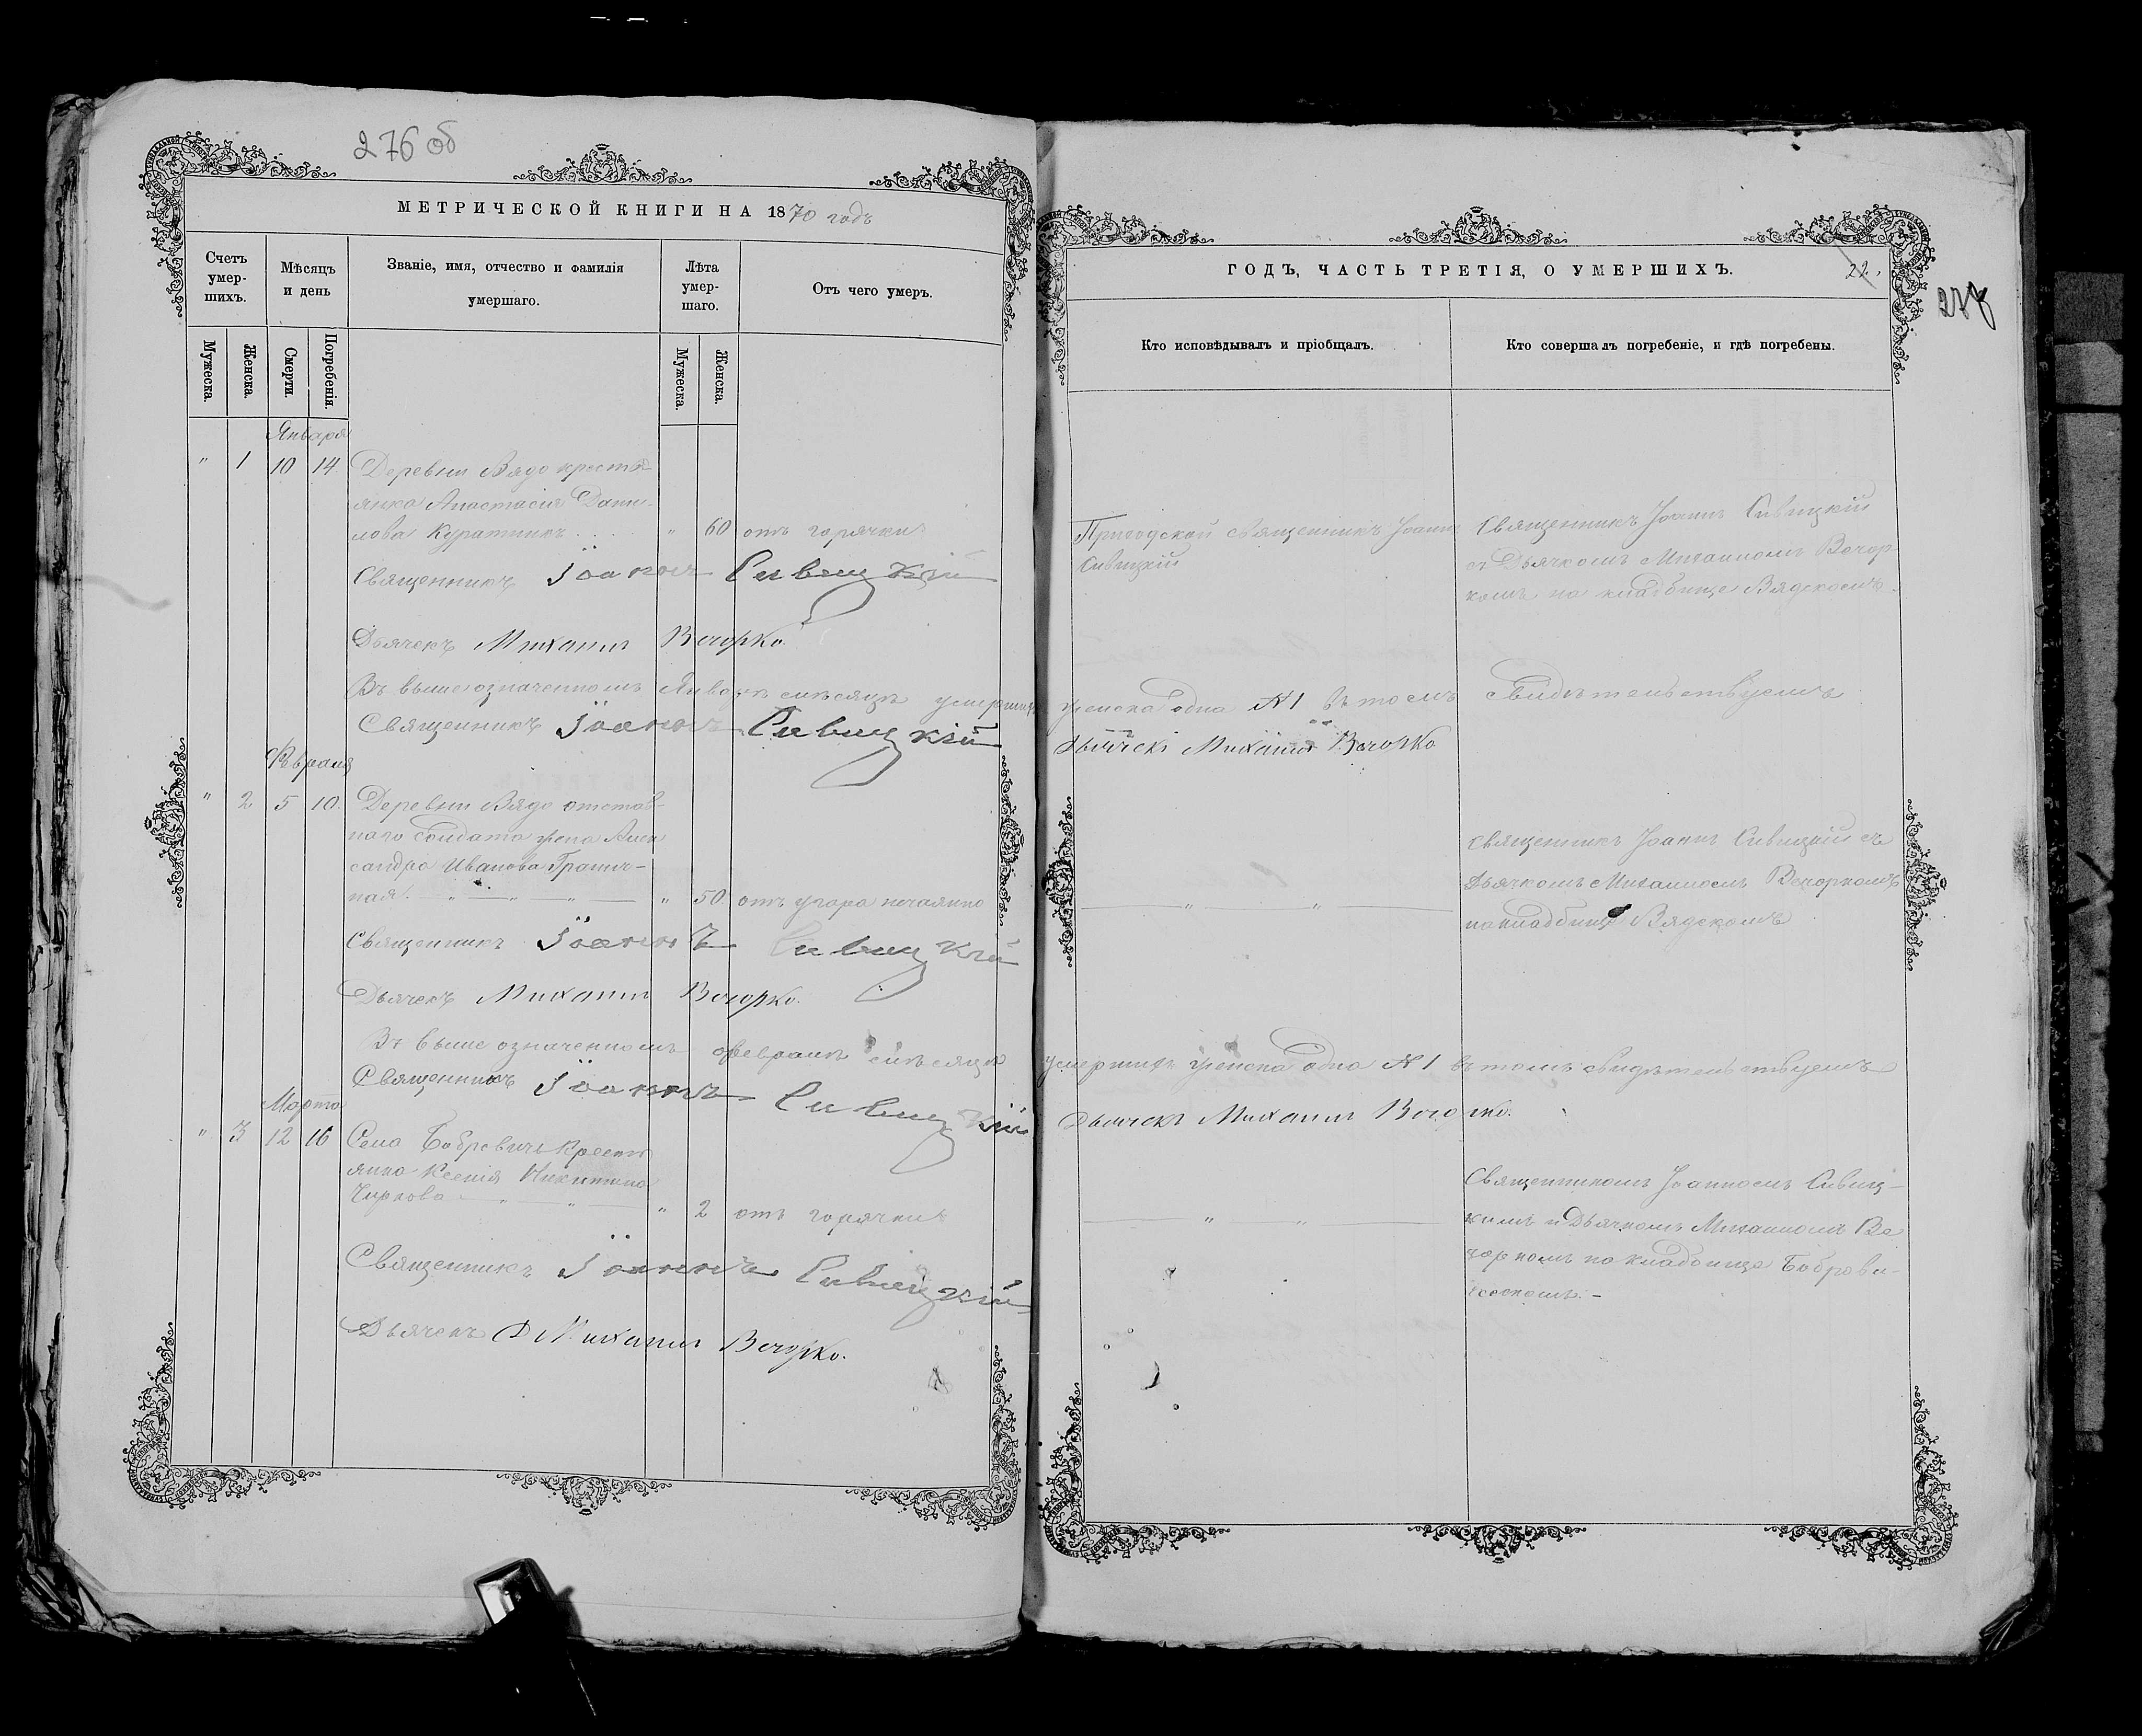 276 об
МЕТРИЧЕСКОЙ КНИГИ НА 1870 годъ
Счетъ умер-шихъ.
Мѣсяцъ и день
Званіе, имя, отчество и фамилія умершаго.
Лѣта умер-шаго.
Отъ чего умеръ.
Мужеска.
Женска.
Смерти.
Погребенія.
Мужеска.
Женска.
Января
" 1 10 14. Деревни Вядо кресть-
янка Анастасія Дани-
лова Куратникъ " 60 отъ горячки
Священникъ Іоаннъ Сивицкій
Дьячекъ Михаилъ Вечорко.
Въ вышеозначенномъ Январѣ мѣсяцѣ умершихъ
Священникъ Іоаннъ Сивицкій
Февраля
" 2 5 10. Деревни Вядо отстав-
наго солдата жена Алек
сандра Иванова Гранич-
ная. " 50 отъ угара нечаянно
Священникъ Іоаннъ Сивицкій
Дьячекъ Михаилъ Вечорко.
Въ выше означенномъ Февралѣ мѣсяцѣ
Священникъ Іоаннъ Сивицкій
Марта
" 3 12 16 Села Бобровичъ кресть
янка Ксенія Никитина
Чиркова " 2 отъ горячки
Священникъ Іоаннъ Сивицкій
Дьячекъ Михаилъ Вечорко.
ГОДЪ, ЧАСТЬ ТРЕТІЯ, О УМЕРШИХЪ.
22.
Кто исповѣдывалъ и пріобщалъ.
Кто совершалъ погребеніе, и гдѣ погребены.
Приходской священникъ Іоаннъ
Сивицкій
Священникъ Іоаннъ Сивицкій
съ Дьячкомъ Михаиломъ Вечор-
комъ на кладбище Вядскомъ.
женска одна №1 въ томъ свидѣтельствуемъ
Дьячекъ Михаилъ Вечорко
Священникъ Іоаннъ Сивицкій съ
Дьячкомъ Михаиломъ Вечоркомъ
на кладбище Вядскомъ
умершихъ женска одна №1 въ томъ свидѣтельствуемъ
Дьячекъ Михаилъ Вечорко.
Священникомъ Іоанномъ Сивиц-
кимъ и Дьячкомъ Михаиломъ Ве
чоркомъ на кладбище Боброви-
чскомъ.-